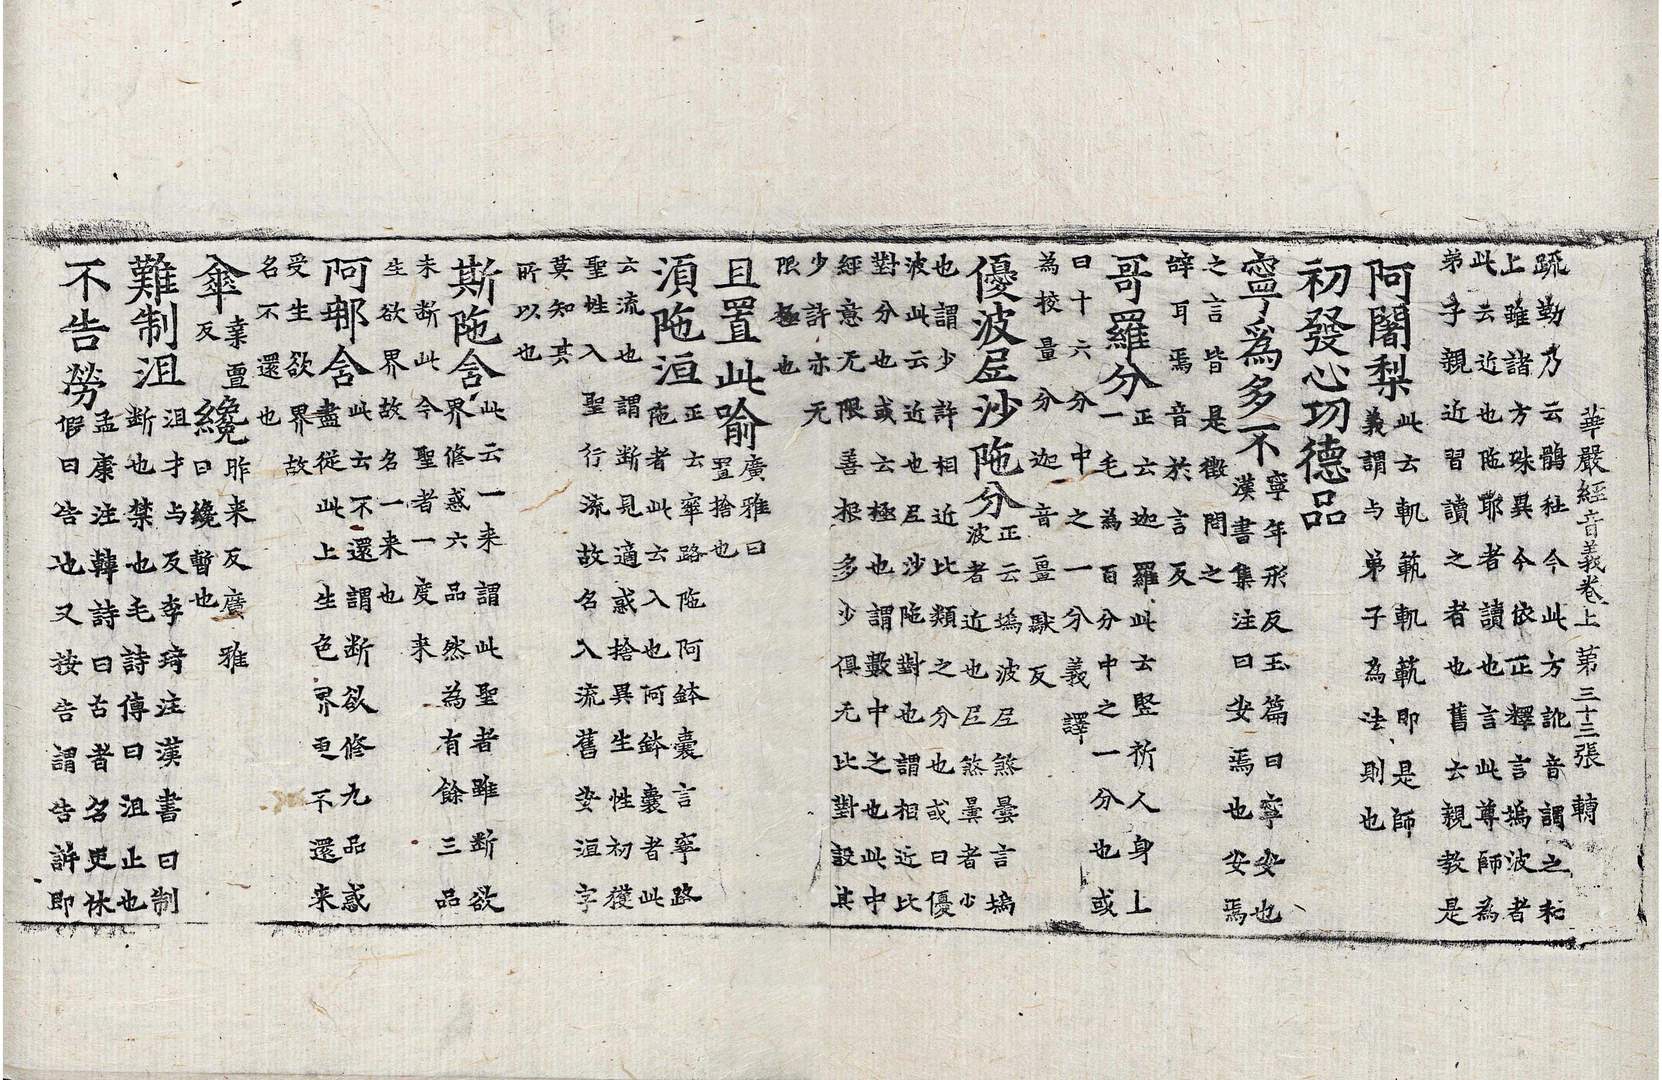 華嚴經音義卷上 第三十三張 轉
踈勤乃云鶻社今此方訛音謂之和
上雖諸方殊異今依正釋言塢波者
此云近也陁耶者讀也言此尊師為
弟子親近習讀之者也舊云親教是
阿闍梨 此云軌範軌範即是師
義謂与弟子為法則也
初發心功德品
寧爲多不 寧年形反玉篇曰寧安也
漢書集注曰安焉也安焉
之言皆是徵問之
辝耳焉音於言反
哥羅分 正云迦羅此云竪析人身上
一毛為百分中之一分也或
曰十六分中之一分義譯
為挍量分迦音畺默反
優波尼沙陁分 正云塢波尼煞曇言塢
波者近也尼煞曇者少
也謂少許相近比類之分也或曰優
波此云近也尼沙陁對也謂相近比
對分也或云極也謂數中之也此中
經意无限善根多少俱无比對設其
少許亦无
限極也
且置此喻 廣雅曰
置捨也
湏陁洹 正云窣路陁阿鉢囊言窣路
陁者此云入也阿鉢囊者此
云流也謂断見適惑捨異生性初獲
聖性入聖行流故名入流舊安洹字
莫知其
所以也
斯陁含 此云一来謂此聖者雖断欲
界修惑六品然為有餘三品
未断此今聖者一度来
生欲界故名一来也
阿那含 此云不還謂断欲修九品惑
盡従此上生色界更不還来
受生欲界故
名不還也
傘 桒亶反 纔 昨来反廣雅曰纔暫也
難制沮 沮才与反李琦注漢書曰制
断也禁也毛詩傳曰沮止也
不告勞 孟康注韓詩曰古者名吏休
假曰告也又按告謂告訴即